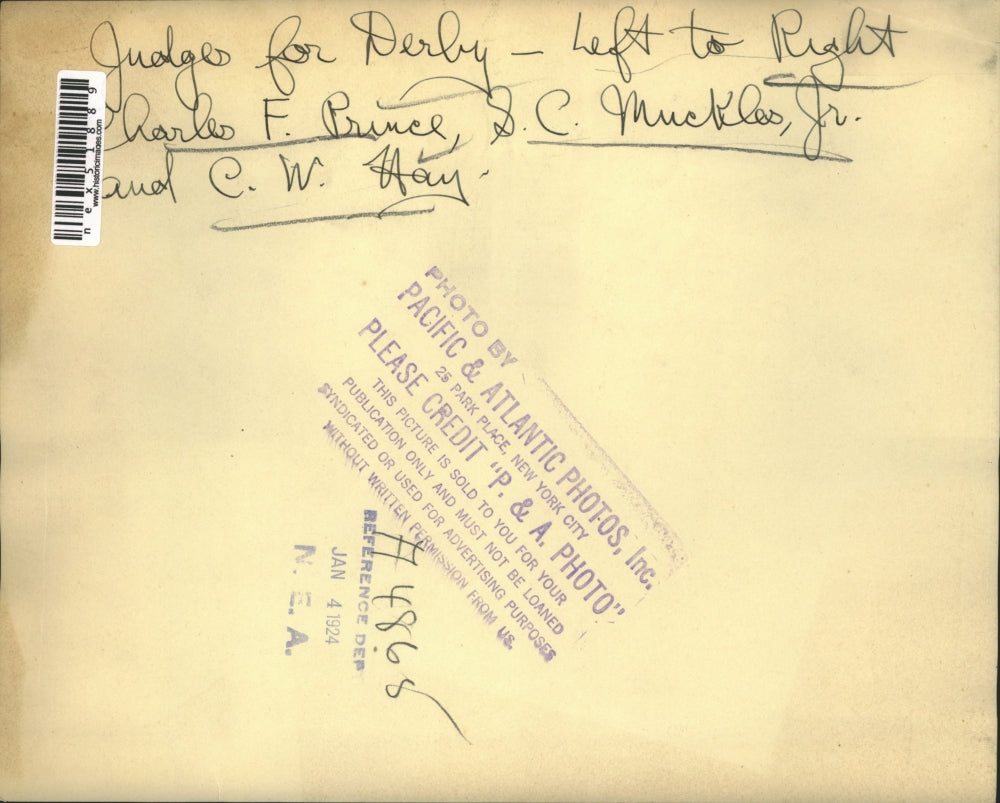 Judges for Derby — Left to Right
Charles F. Prince, S. C. Muckles, Jr.
and C. W. Hay.
nex51889
www.historicimages.com
PHOTO BY
PACIFIC & ATLANTIC PHOTOS, Inc.
25 PARK PLACE, NEW YORK CITY
PLEASE CREDIT "P. & A. PHOTO"
THIS PICTURE IS SOLD TO YOU FOR YOUR
PUBLICATION ONLY AND MUST NOT BE LOANED
SYNDICATED OR USED FOR ADVERTISING PURPOSES
WITHOUT WRITTEN PERMISSION FROM US.
REFERENCE DEP
JAN 4 1924
N. E. A.